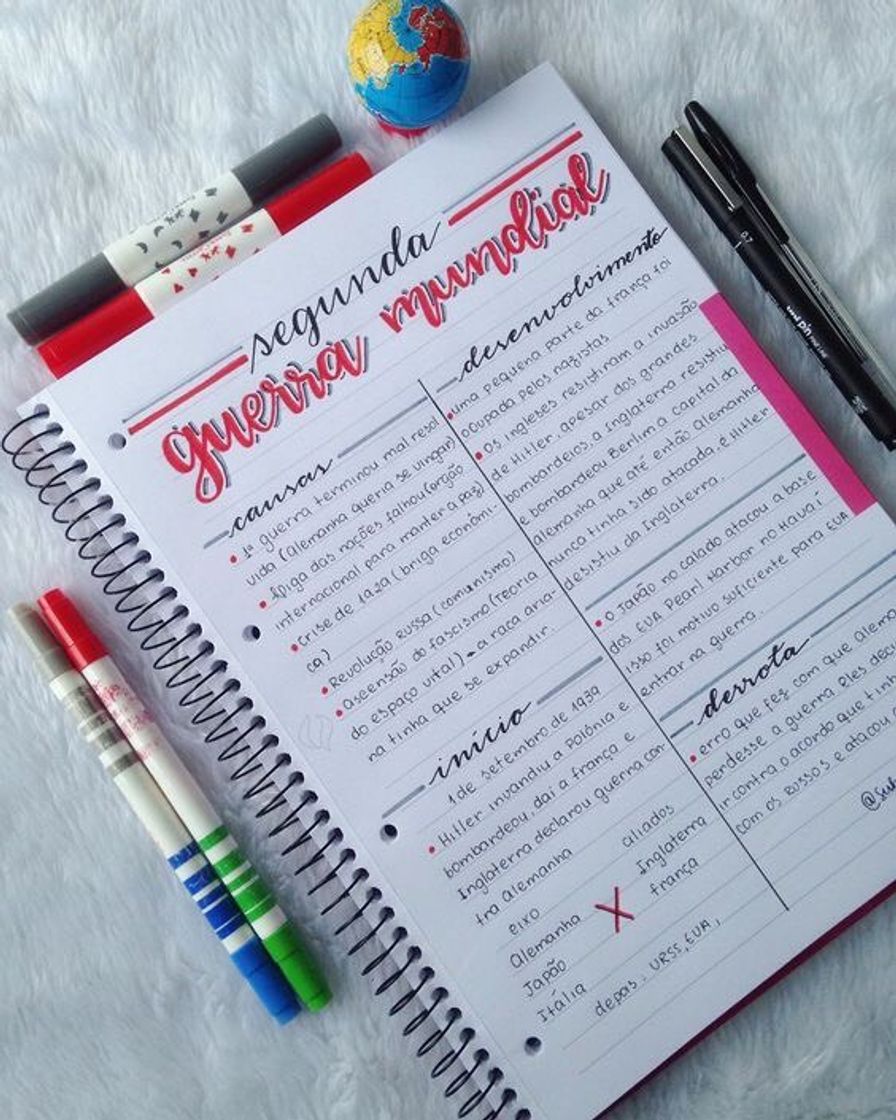 segunda
guerra mundial
causas
• 1ª guerra terminou mal resol
vida (Alemanha queria se vingar)
• A liga das nações falhou (orgão
internacional para manter a paz)
• Crise de 1929 (briga econômi-
ca)
• Revolução Russa (comunismo)
• ascensão do fascismo (Teoria
do espaço vital) → a raça aria-
na tinha que se expandir.
início
1 de setembro de 1939
• Hitler invandiu a Polônia e
bombardeou, dai a frança e
Inglaterra declarou guerra con-
tra Alemanha
eixo
aliados
Alemanha X Inglaterra
Japão
frança
Itália
depois: URSS, EUA,
desenvolvimento
• uma pequena parte da frança foi
ocupada pelos nazistas
• Os ingleses resistiram a invasão
de Hitler, apesar dos grandes
bombardeios, a Inglaterra resistiu
e bombardeou Berlim a capital da
alemanha que até então Alemanha
nunca tinha sido atacada, e Hitler
desistiu da Inglaterra.
• O Japão no calado atacou a base
dos EUA Pearl Harbor no Havaí
isso foi motivo suficiente para EUA
entrar na guerra.
derrota
• erro que fez com que Alem
perdesse a guerra Eles deci
ir contra o acordo que tin
com os Russos e atacou
0.7